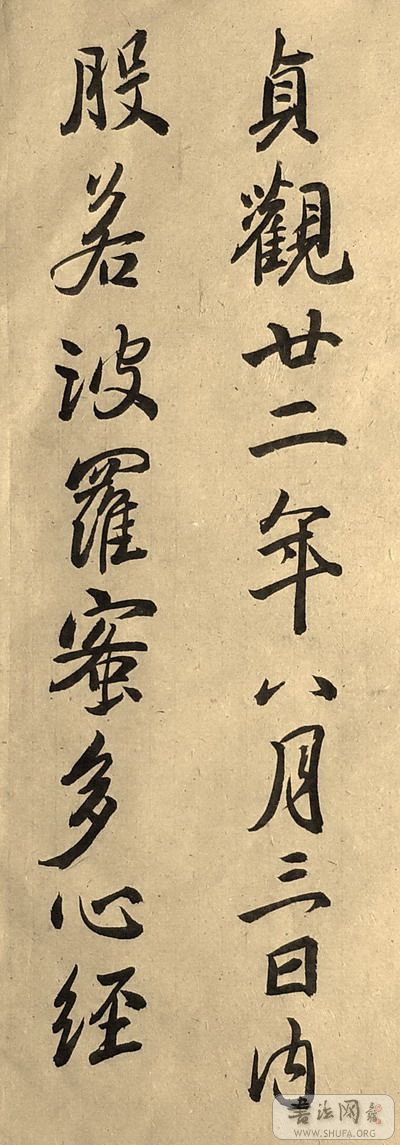 貞觀廿二年八月三日內
股若波羅蜜多心經
書法网
WWW.SHUFA.ORG